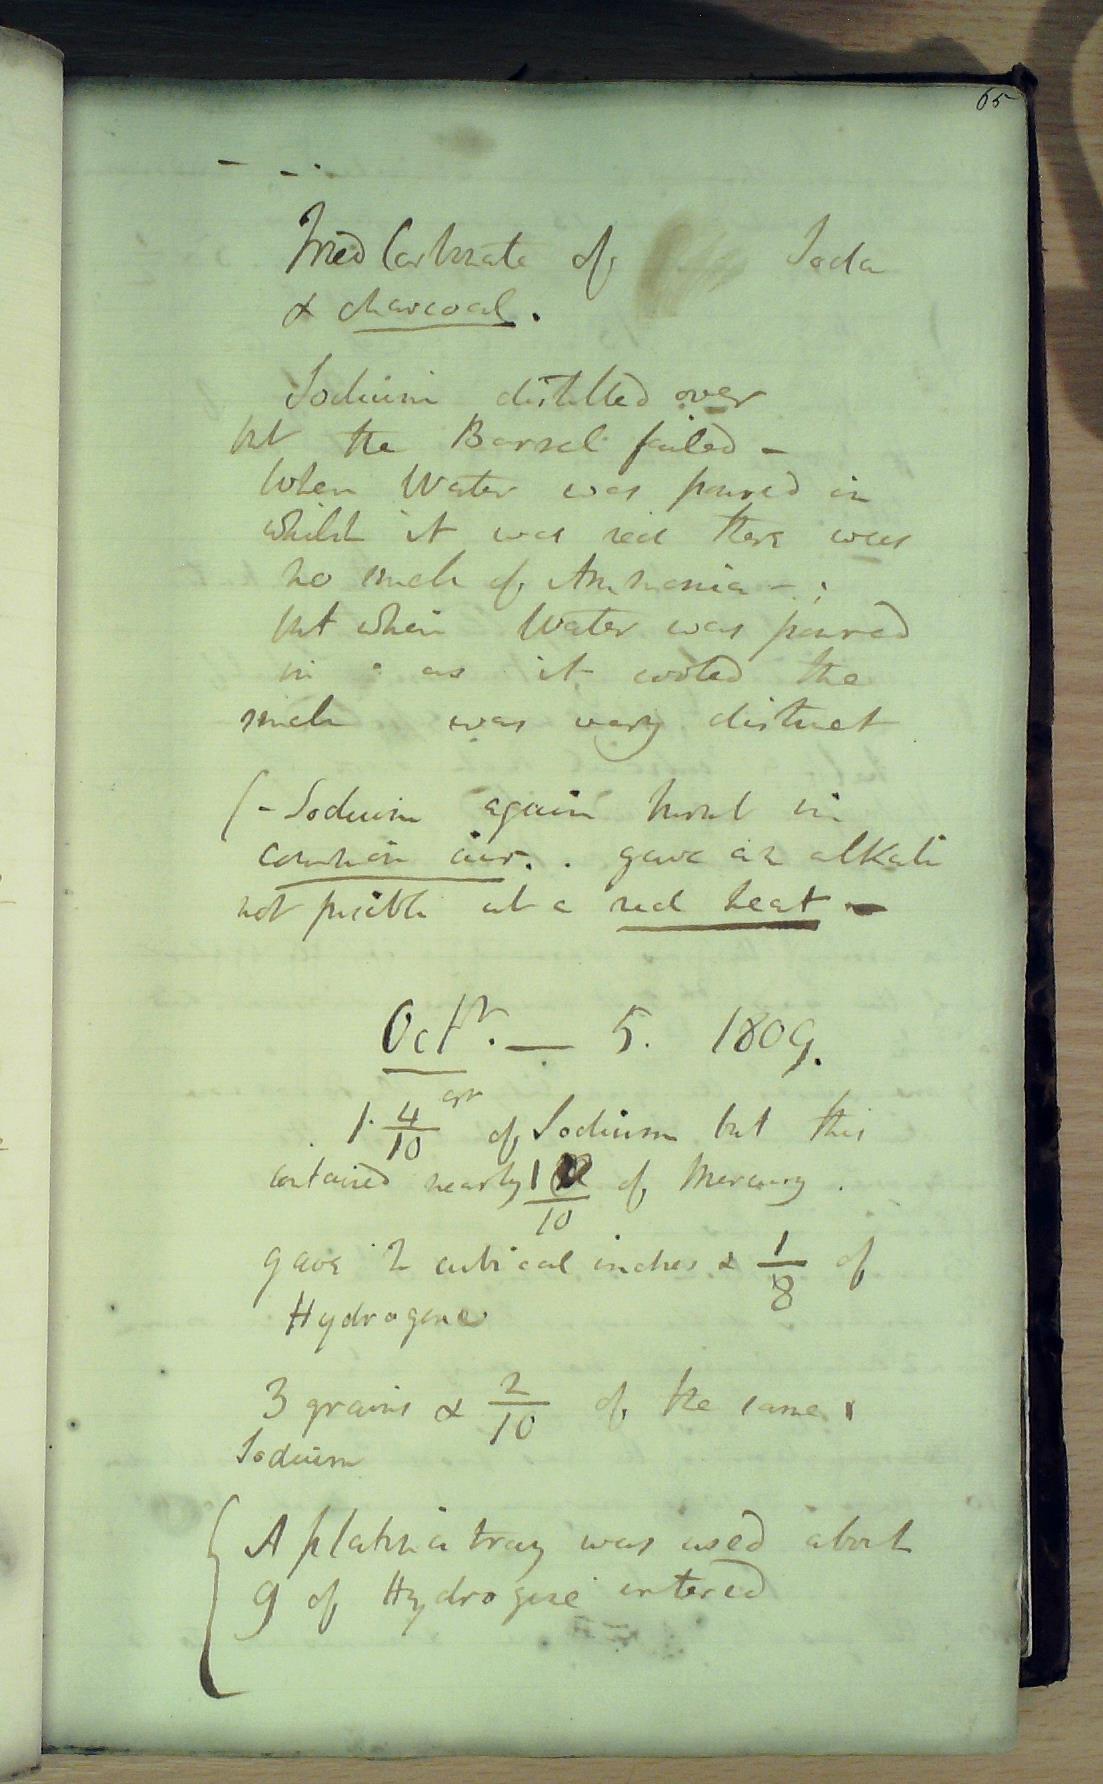 65
Tried Carbonate of Soda
& charcoal.
Sodium distilled over
but the Barrel failed -
When Water was poured in
whilst it was red there was
no smell of Ammonia - ;
but when Water was poured
in as it cooled the
smell was very distinct
(- Sodium again burnt in
common air. . gave an alkali
not fusible at a red heat -
Octr. — 5. 1809.
1. 4/10 grn of Sodium but this
contained nearly 1/10 of Mercury .
gave 2 cubical inches & 1/8 of
Hydrogene
3 grains & 2/10 of the same
Sodium
A platina tray was used about
9 of Hydrogene entered